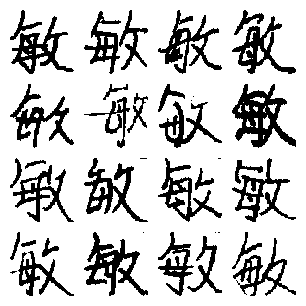 敏敏敏敏
敏敏敏敏
敏敏敏敏
敏敏敏敏